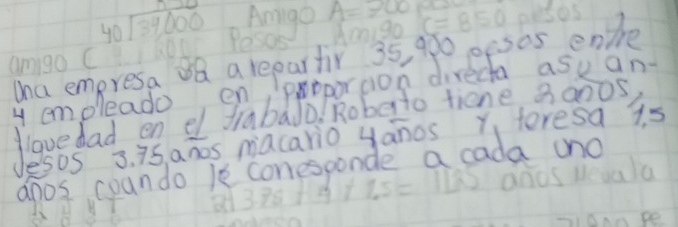 40 34000 Amigo A=
amigo C Pesos Amigo C=850 pesos
Una empresa va a repartir 35,900 pesos entre
4 empleado en proporcion directa asu an-
tiguedad en el trabajo. Roberto tiene 3 años,
Jesus 3.75, años macario 4 años y teresa 1.5
años cuando le conesponde a cada uno
3.75 + 4 + 1.5 = años